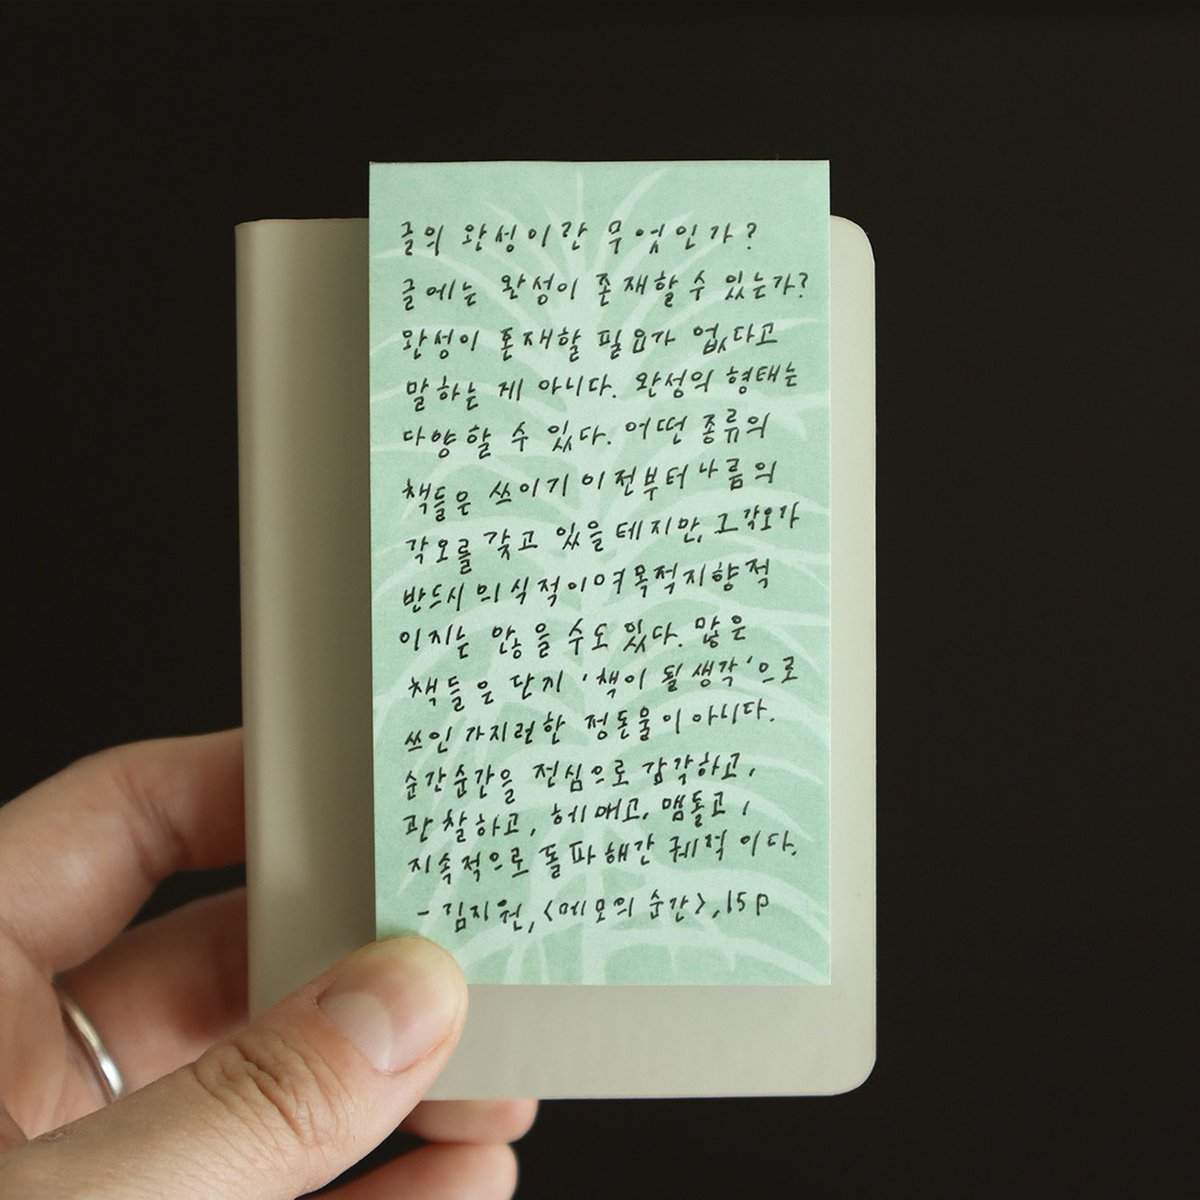 글의 완성이란 무엇인가?
글에는 완성이 존재할 수 있는가?
완성이 존재할 필요가 없다고
말하는 게 아니다. 완성의 형태는
다양할 수 있다. 어떤 종류의
책들은 쓰이기 이전부터 나름의
각오를 갖고 있을 테지만, 그 각오가
반드시 의식적이며 목적지향적
이지는 않을 수도 있다. 많은
책들은 단지 '책이 될 생각'으로
쓰인 가지런한 정돈물이 아니다.
순간순간을 전심으로 감각하고,
관찰하고, 헤매고, 맴돌고,
지속적으로 돌파해간 궤적이다.
- 김지원, <메모의 순간>, 15p